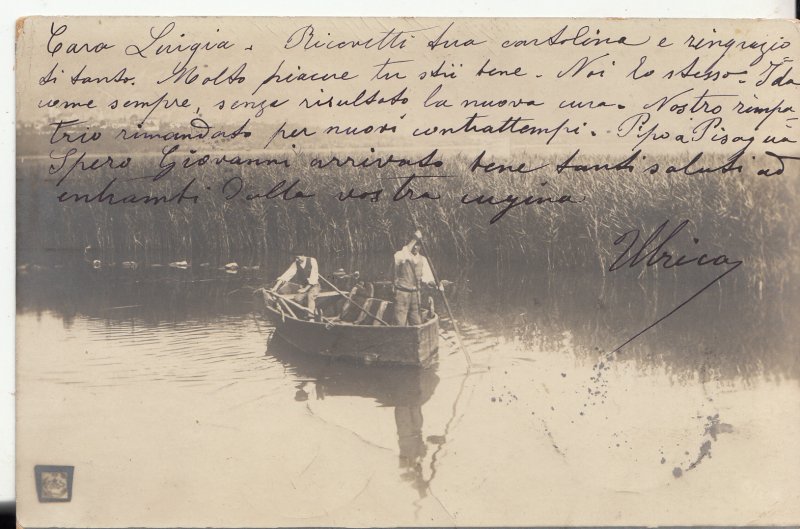 Cara Luigia. Ricevetti tua cartolina e ringrazio
ti tanto. Molto piacere tu stii bene. Noi lo stesso. Ida
come sempre, senza risultato la nuova cura. Nostro rimpa
trio rimandato per nuovi contrattempi. Pipo a Pisagua
Spero Giovanni arrivato bene tanti saluti ad
entrambi dalla vostra cugina
Ulrica